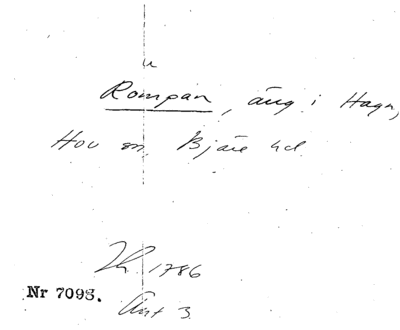 u
Rompan, äng i Haga,
Hov sn. Bjäre hd.
1786
Nr 7093.
Akt 3